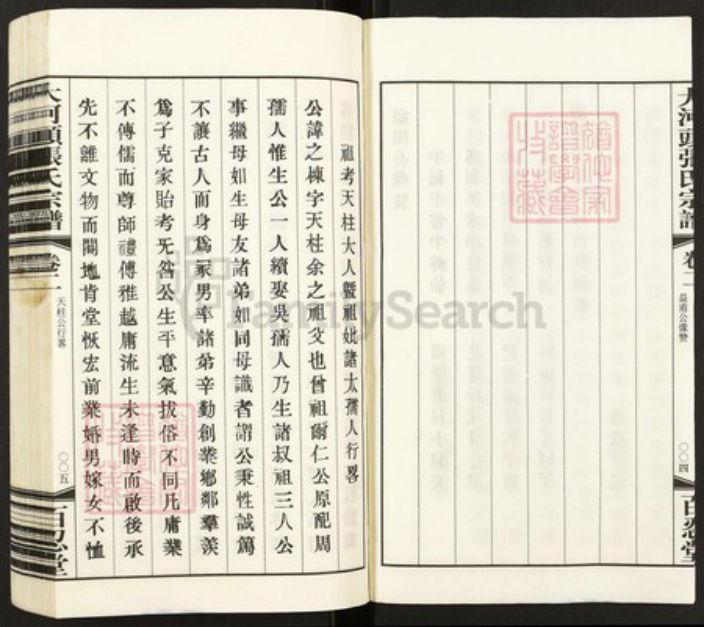 大河頭張氏宗譜
卷二
益甫公像贊
〇〇四
百忍堂
譜學會
收藏
祖考天柱大人暨祖妣諸太孺人行畧
公諱之棟字天柱余之祖父也曾祖爾仁公原配周
孺人惟生公一人續娶吳孺人乃生諸叔祖三人公
事繼母如生母友諸弟如同母識者謂公秉性誠篤
不讓古人而身爲冢男率諸弟辛勤創業鄉鄰羣羨
爲子克家貽考旡咎公生平意氣拔俗不同凡庸業
不傳儒而尊師禮傅雅越庸流生未逢時而啟後承
先不離文物而闢地肯堂恢宏前業婚男嫁女不恤
大河頭張氏宗譜
卷二
天柱公行畧
〇〇五
百忍堂
FamilySearch